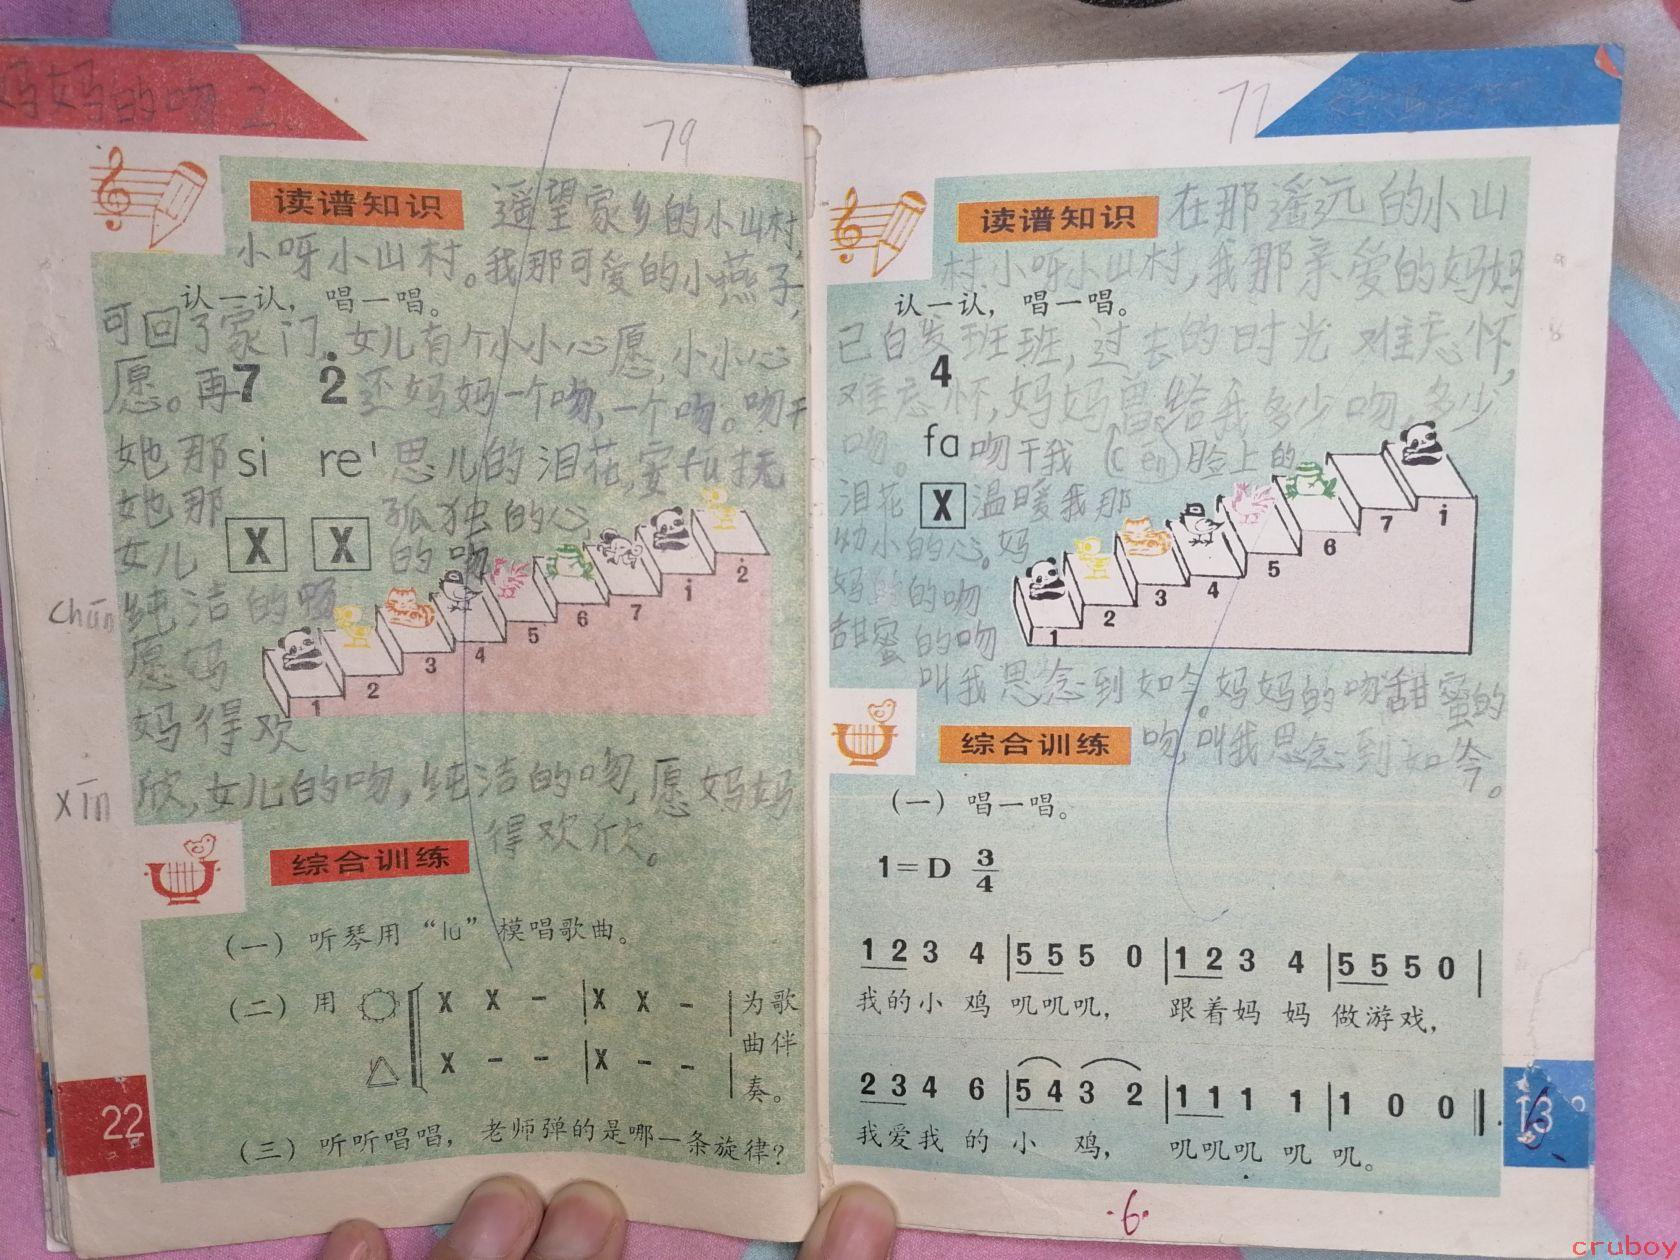 妈妈的吻 2、
79
读谱知识
遥望家乡的小山村,
小呀小山村。我那可爱的小燕子,
认一认， 唱一唱。
可回了家门.女儿有个小小心愿,小小心
愿。再 7 2̇ 还妈妈一个吻,一个吻。吻干
她那 si re' 思儿的泪花,安fǔ抚
她那 孤独的心
女儿 X X 的吻
chún 纯洁的吻
愿妈
妈得欢
1 2 3 4 5 6 7 i 2̇
xīn 欣,女儿的吻,纯洁的吻,愿妈妈
得欢欣。
综合训练
(一) 听琴用 “lu” 模唱歌曲。
(二) 用 X X - | X X - | 为歌
曲伴
X - - | X - - | 奏。
(三) 听听唱唱， 老师弹的是哪一条旋律?
22
77
读谱知识
在那遥远的小山
村,小呀小山村,我那亲爱的妈妈
认一认， 唱一唱。
已白发班班,过去的时光 难忘怀,
4
难忘怀,妈妈曾给我多少吻,多少
吻。 fa 吻干我 脸上的
泪花 X 温暖我那
幼小的心。妈
妈的吻
甜蜜的吻
1 2 3 4 5 6 7 i
叫我思念到如今。妈妈的吻甜蜜的
吻,叫我思念到如今。
综合训练
(一) 唱一唱。
1=D 3/4
1 2 3 4 | 5 5 5 0 | 1 2 3 4 | 5 5 5 0 |
我的小 鸡 叽叽叽， 跟着妈 妈 做游戏，
2 3 4 6 | 5 4 3 2 | 1 1 1 1 | 1 0 0 ‖
我爱我 的 小 鸡， 叽叽叽 叽 叽。
13
·6·
cruboy